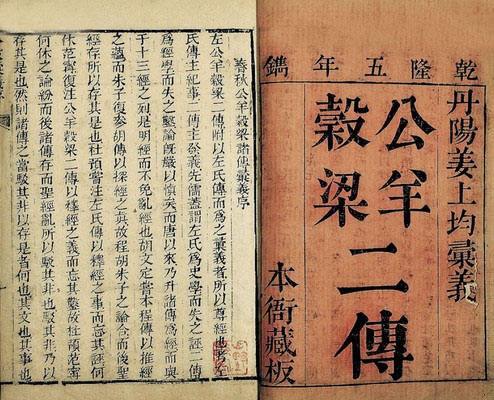 乾隆五年鐫
丹陽姜上均彙義
公羊
穀梁
二傳
本衙藏板
春秋公羊穀梁諸傳彙義序
公羊穀梁二傳附以左氏傳而為之彙義者所以尊經也考左
氏傳主紀事二傳主發義先儒蓋謂左氏為史學而失之誣二傳
為經學而失之鑿論旣嚴以慎矣而唐以來乃升諸傳為經而
于十三經之列是明經而不免亂經也胡文定嘗本程傳以推經
之蘊而朱子復參胡傳以探經之真故程胡朱子之論合而後聖
經存所以存其是也杜預嘗注左氏傳以釋經之事而忘其誣何
休范甯復注公羊穀梁二傳以釋經之義而忘其鑿故杜預范甯
何休之論紛而後諸傳存而聖經亂所以駁其非也駁其非乃以
存其是也然則諸傳之當駁其非以存是者何也其文也其事也